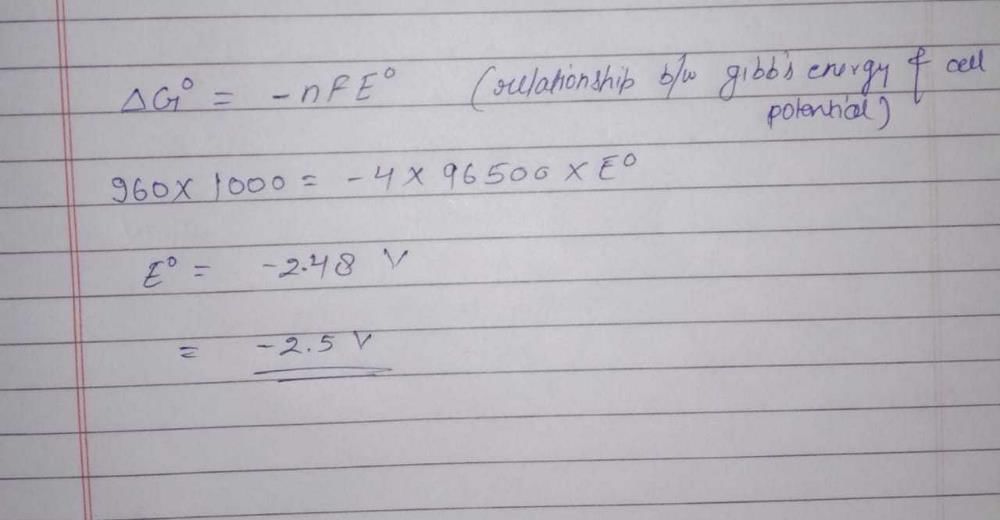 ΔG° = -nFE° (relationship b/w gibb's energy & cell
potential)
960 x 1000 = -4 x 96500 x E°
E° = -2.48 V
= -2.5 V